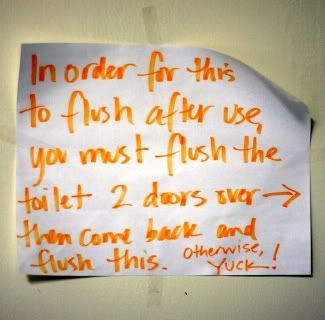 In order for this
to flush after use,
you must flush the
toilet 2 doors over →
then come back and
flush this. Otherwise,
YUCK!